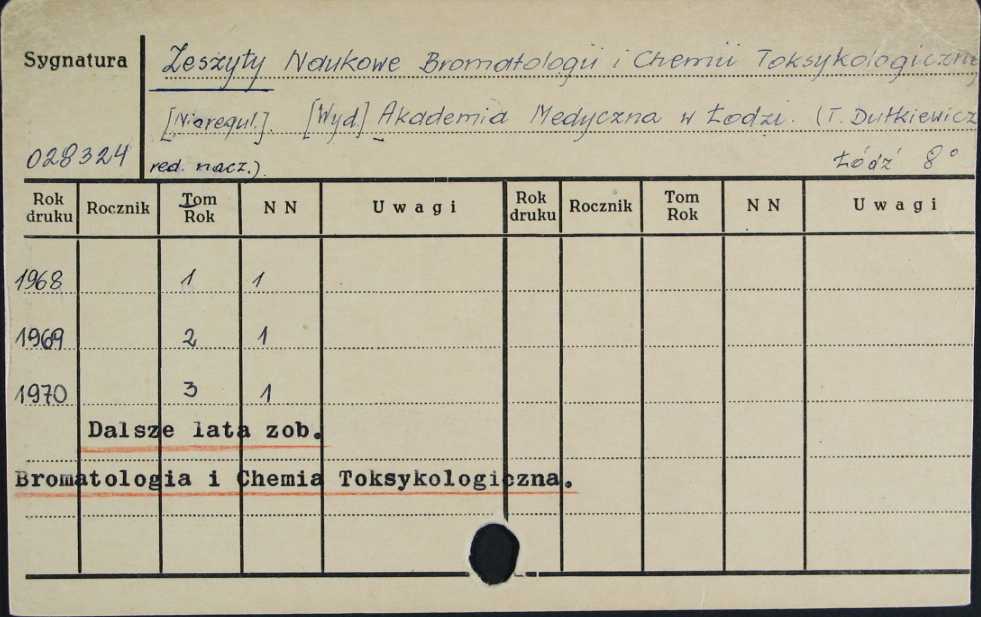 Sygnatura Zeszyty Naukowe Bromatologii i Chemii Toksykologicznej
[Nieregul.]. [Wyd.] Akademia Medyczna w Łodzi. (T. Dutkiewicz
028324 red. nacz.). Łódź 8°
Rok druku Rocznik Tom Rok N N Uwagi Rok druku Rocznik Tom Rok N N Uwagi
1968 1 1
1969 2 1
1970 3 1
Dalsze lata zob.
Bromatologia i Chemia Toksykologiczna.